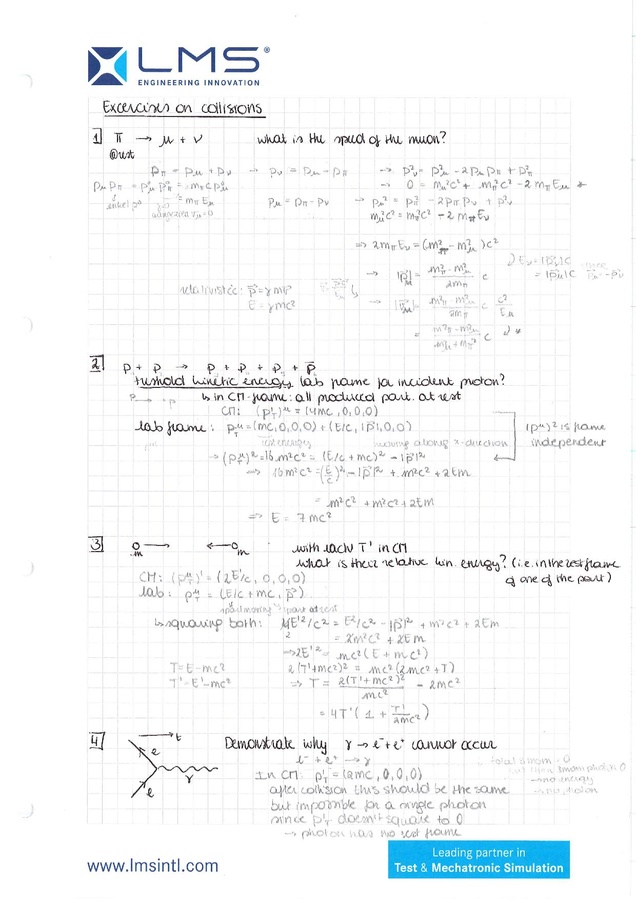 LMS®
ENGINEERING INNOVATION
Excercises on collisions
1 π → μ + ν what is the speed of the muon?
@rest
pπ = pμ + pν → pν = pμ - pπ → p²ν = p²μ - 2pμ pπ + p²π
→ 0 = mμ²c² + mπ²c² - 2mπEμ *
pμ = pπ - pν → pμ² = pπ² - 2pπ pν + p²ν
mμ²c² = mπ²c² - 2mπEν
⇒ 2mπEν = (mπ² - mμ²)c²
relativistic: p⃗ = γmv⃗
E = γmc²
2 p + p → p + p + p + p̅
treshold kinetic energy lab frame for incident proton?
↳ in CM-frame: all produced part. at rest
CM: (p'T)μ = (4mc, 0, 0, 0)
lab frame: pTμ = (mc, 0, 0, 0) + (E/c, |p⃗|, 0, 0) (pμ)² is frame
rest energies moving along x-direction independent
→ (pTμ)² = 16m²c² = (E/c + mc)² - |p⃗|²
⇒ 16m²c² = (E/c)² - |p⃗|² + m²c² + 2Em
= m²c² + m²c² + 2Em
⇒ E = 7mc²
3 m → ← m with each T' in CM
what is their relative kin. energy? (i.e. in the rest frame
of one of the part)
CM: (pTμ)' = (2E'/c, 0, 0, 0)
lab: pTμ = (E/c + mc, p⃗)
1 part moving 1 part at rest
↳ squaring both: 4E'²/c² = E²/c² - |p⃗|² + m²c² + 2Em
= 2m²c² + 2Em
→ 2E'² = mc²(E + mc²)
T = E - mc² 2(T' + mc²)² = mc²(2mc² + T)
T' = E' - mc² ⇒ T = 2(T' + mc²)²/mc² - 2mc²
= 4T'(1 + T'/2mc²)
4 t Demonstrate why γ → e⁻ + e⁺ cannot occur
e⁻ + e⁺ → γ
In CM: p'T = (2mc, 0, 0, 0)
after collision this should be the same
but impossible for a single photon
since p'T doesn't square to 0
→ photon has no rest frame
total 3mom = 0
→ no energy
→ no photon
e γ e
www.lmsintl.com
Leading partner in
Test & Mechatronic Simulation